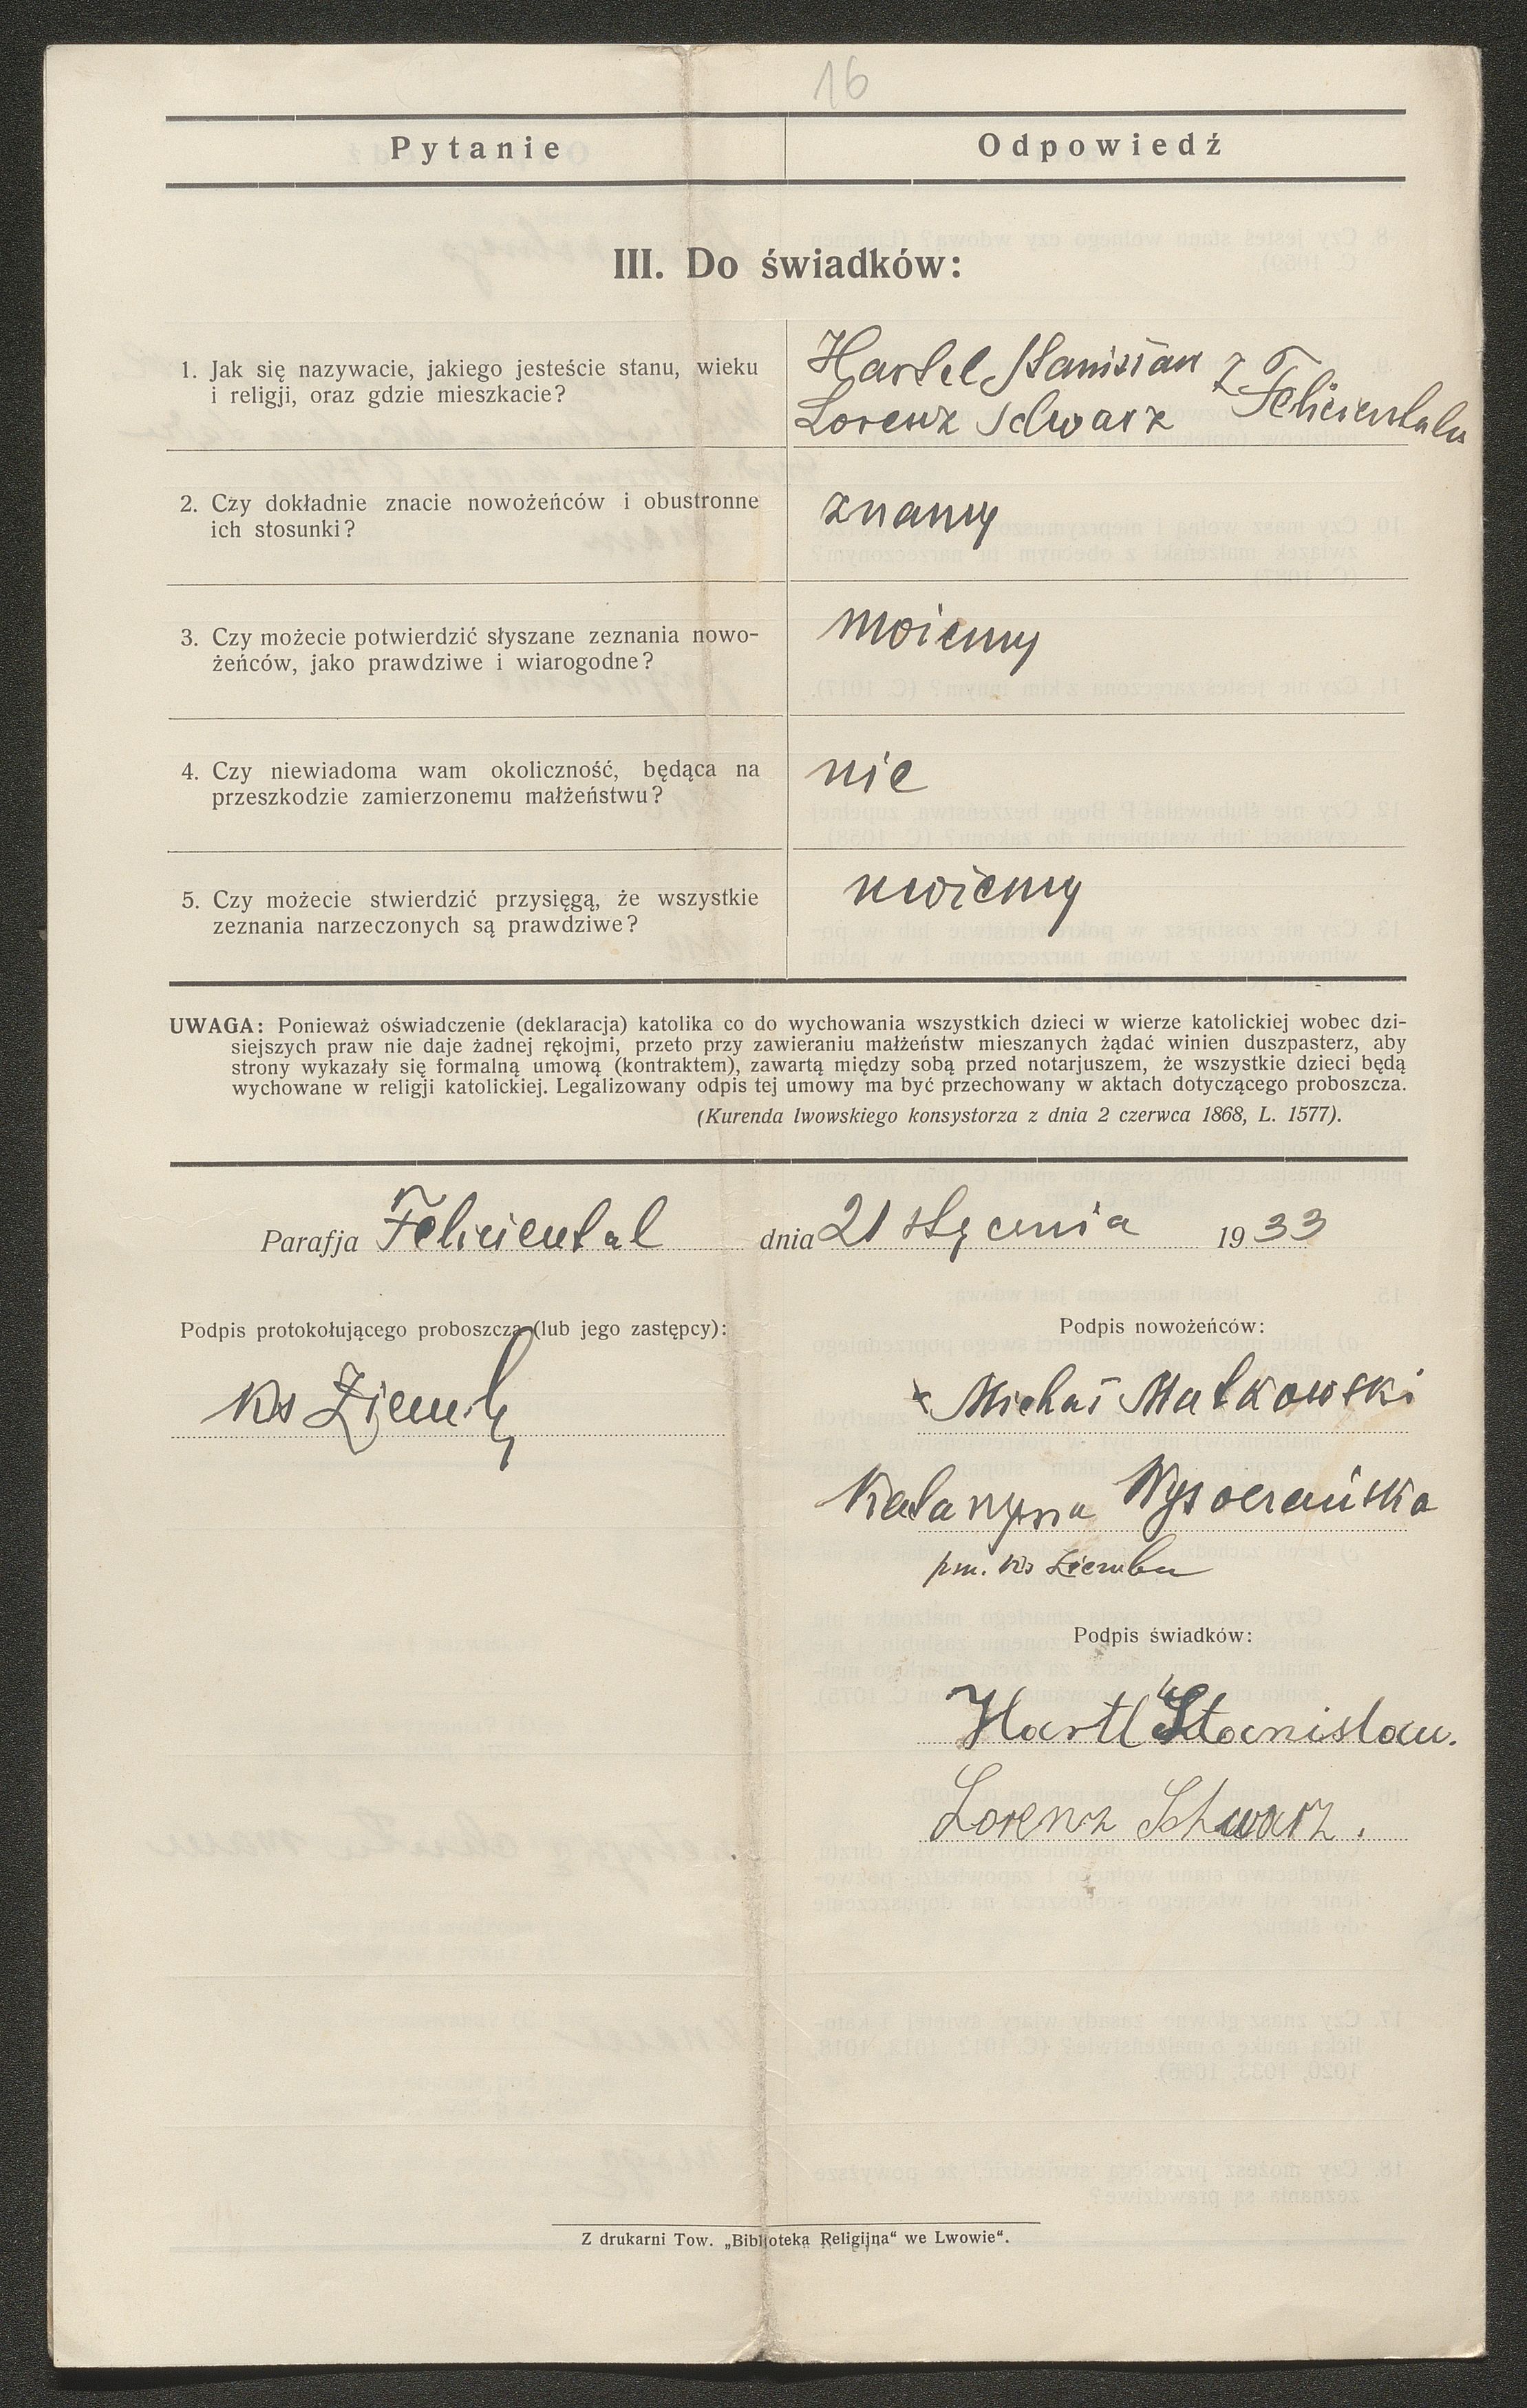 16
Pytanie
Odpowiedź
III. Do świadków:
1. Jak się nazywacie, jakiego jesteście stanu, wieku
i religji, oraz gdzie mieszkacie?
Hartel Stanisław z Felicientalu
Lorenz Schwarz
2. Czy dokładnie znacie nowożeńców i obustronne
ich stosunki?
znamy
3. Czy możecie potwierdzić słyszane zeznania nowo-
żeńców, jako prawdziwe i wiarogodne?
możemy
4. Czy niewiadoma wam okoliczność, będąca na
przeszkodzie zamierzonemu małżeństwu?
nie
5. Czy możecie stwierdzić przysięgą, że wszystkie
zeznania narzeczonych są prawdziwe?
możemy
UWAGA: Ponieważ oświadczenie (deklaracja) katolika co do wychowania wszystkich dzieci w wierze katolickiej wobec dzi-
siejszych praw nie daje żadnej rękojmi, przeto przy zawieraniu małżeństw mieszanych żądać winien duszpasterz, aby
strony wykazały się formalną umową (kontraktem), zawartą między sobą przed notarjuszem, że wszystkie dzieci będą
wychowane w religji katolickiej. Legalizowany odpis tej umowy ma być przechowany w aktach dotyczącego proboszcza.
(Kurenda lwowskiego konsystorza z dnia 2 czerwca 1868, L. 1577).
Parafja Feliciental dnia 21 stycznia 1933
Podpis protokołującego proboszcza (lub jego zastępcy):
Ks Ziemba
Podpis nowożeńców:
x Michał Małkowski
Katarzyna Wysoczańska
pm. Ks Ziemba
Podpis świadków:
Hartl Stanislau.
Lorenz Schwarz.
Z drukarni Tow. „Bibljoteka Religijna“ we Lwowie“.